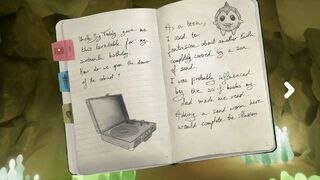 Uncle Big Teddy gave me
this turntable for my
sixteenth birthday.
How do we open the drawer
of the cabinet?
As a teen,
I used to
fantasize about another Earth,
completely covered by a sea
of sand.
I was probably influenced
by the sci-fi books my
dad made me read.
Adding a sand worm here
would complete the illusion